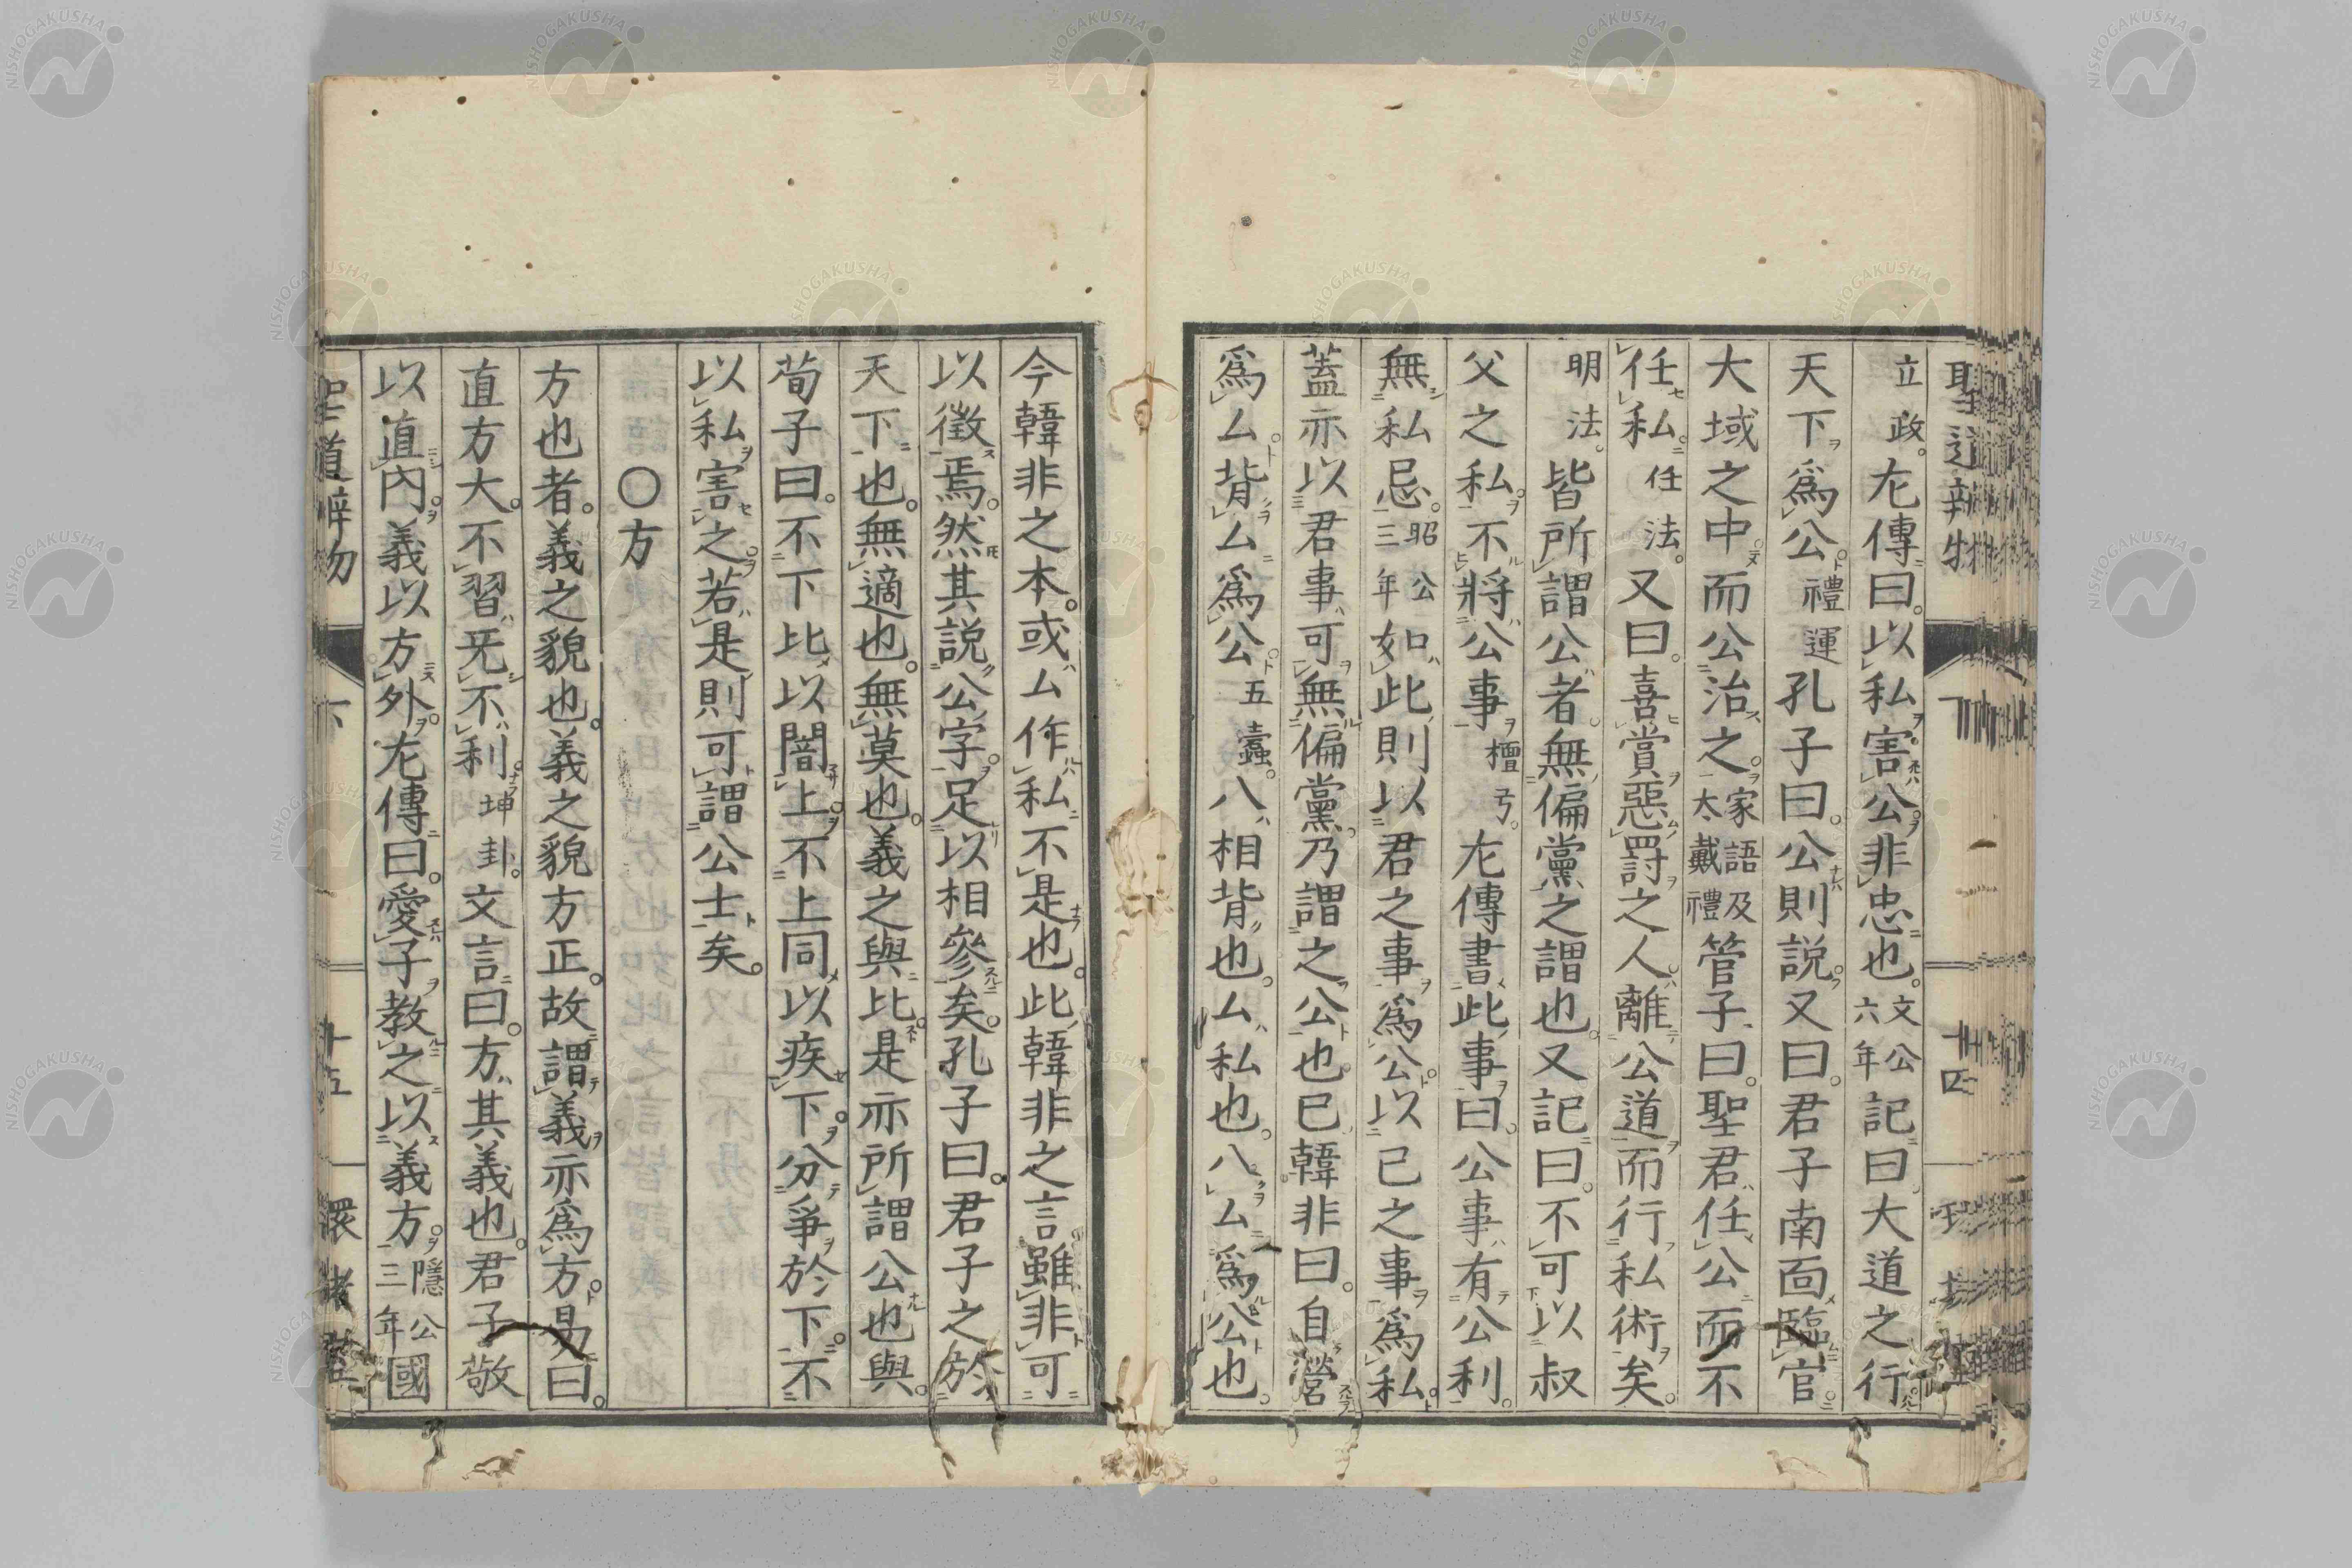 聖道辨物 下 十四
立政。左傳曰。以私害公。非忠也。文公六年記曰。大道之行。
天下爲公。禮運孔子曰。公則説。又曰。君子南面臨官。
大域之中。而公治之。家語及大戴禮管子曰。聖君任公而不
任私。任法。又曰。喜賞惡罸之人。離公道而行私術矣。
明法。皆所謂公者。無偏黨之謂也。又記曰。不可以叔
父之私。不將公事。檀弓。左傳書此事曰。公事有公利。
無私忌。昭公三年如此。則以君之事爲公。以己之事爲私。
蓋亦以君事可無偏黨。乃謂之公也。已韓非曰。自營
爲厶。背厶爲公。五蠹。八相背也。厶私也。八厶爲公也。
今韓非之本。或厶作私。不是也。此韓非之言。雖非可
以徵焉。然其説公字。足以相參矣。孔子曰。君子之於
天下也。無適也。無莫也。義之與比。是亦所謂公也與。
荀子曰。不下比以闇上。不上同以疾下。分爭於下。不
以私害之。若是則可謂公士矣。
○方
方也者。義之貌也。義之貌方正。故謂義亦爲方。易曰。
直方大。不習旡不利。坤卦。文言曰。方其義也。君子敬
以直內。義以方外。左傳曰。愛子教之以義方。隱公三年國
聖道辨物 下 十五 環堵